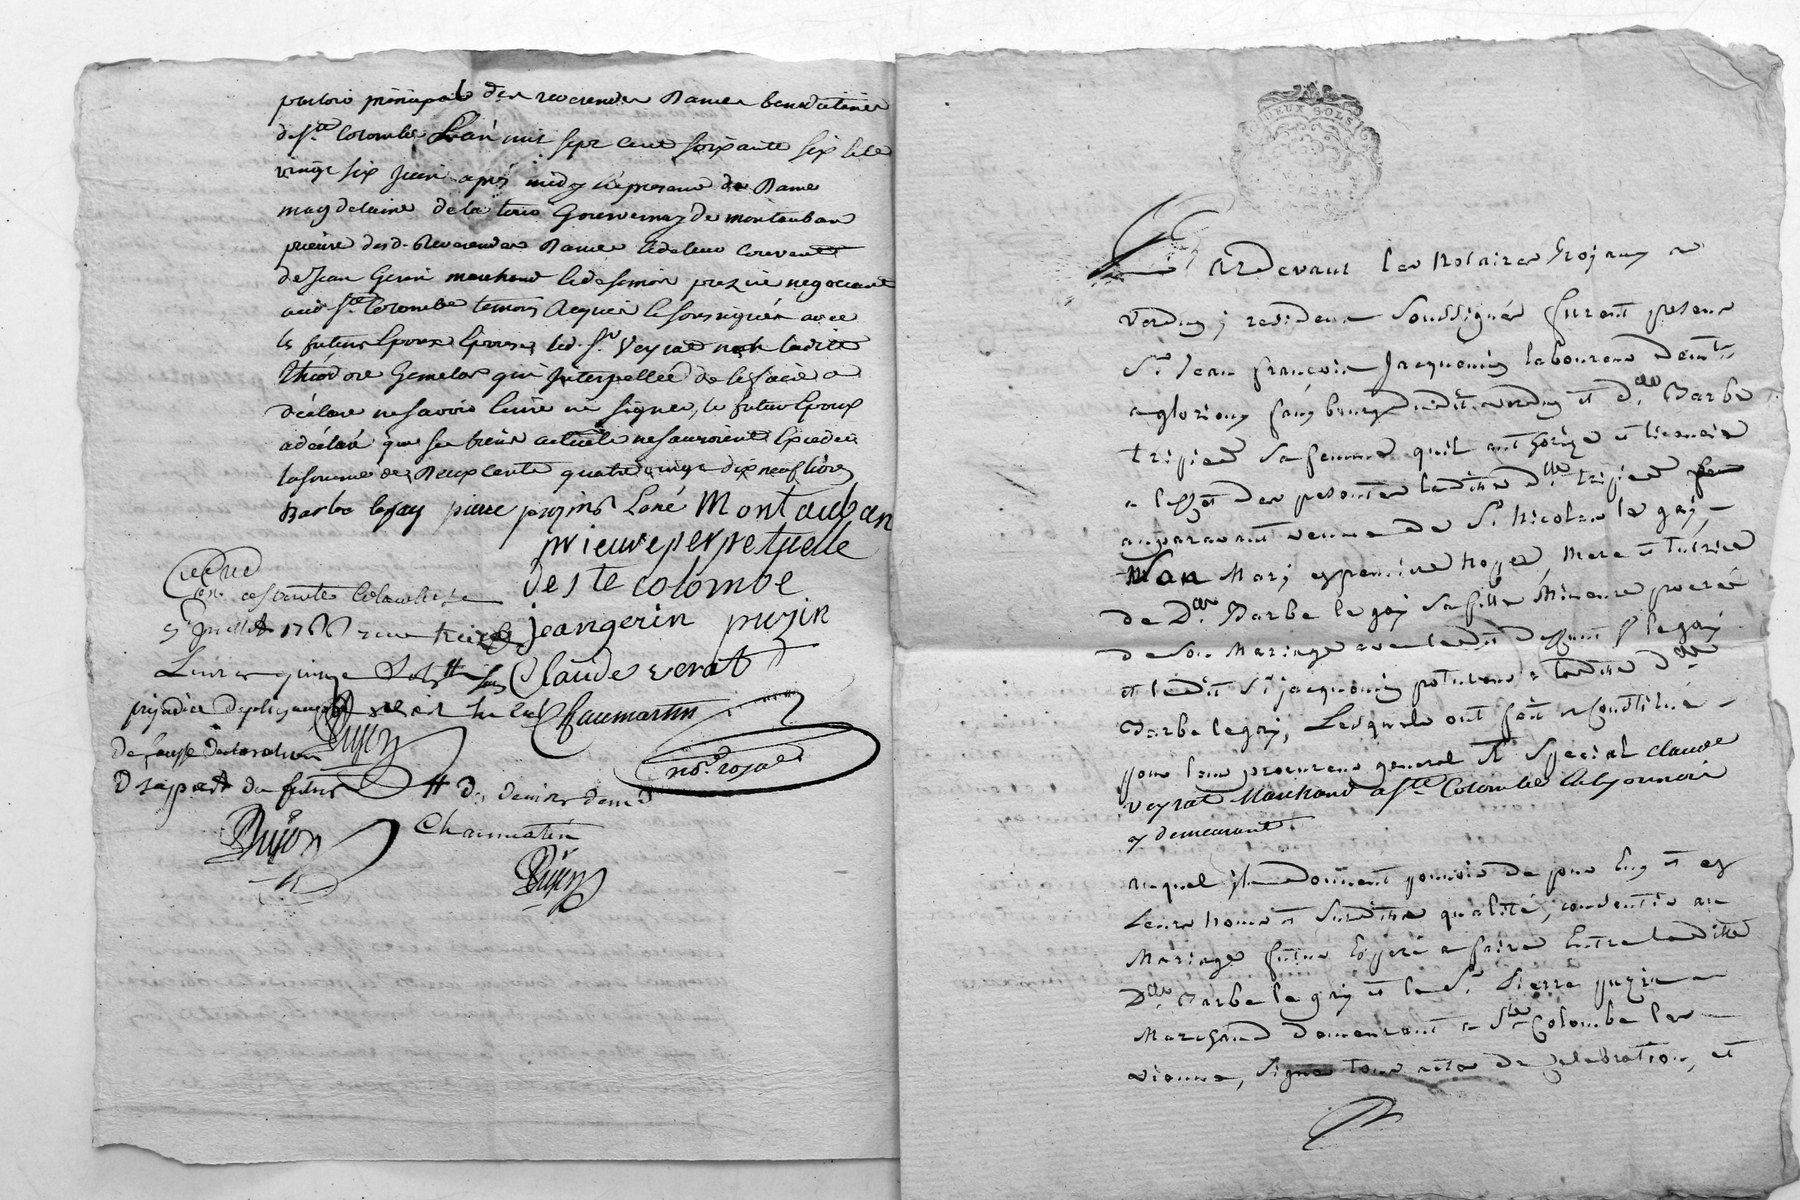 parloir principal des reverendes Dames benedictines
de Ste Colombe L'an mil sept cent soixante six et le
vingt six Juin après midy En presence de Dame
magdelaine de la tour Gouvernay de montauban
prieure desd. Reverendes Dames et de leur couvent
de Jean Gerin marchand et de simon puzin negociant
aud Ste Colombe temoins Requis et soussignés avec
les futurs Epoux Epouse, led. Sr Veyrat non laditte
théodore Gemelas qui Interpellée de le faire a
déclaré ne savoir lire ni signer, le futur Epoux
a déclaré que ses biens actuels ne sauroient Exceder
la somme de Deux cents quatre vingt dix neuf livres
Barbe legay pierre puzin Loné Montauban
prieure perpetuelle
de ste colombe
jean gerin puzin
Claude verat
Chaumartin
nore royal
à sainte Colombe le
5e Juillet 1766 reçu treize
Livres quinze sols
prejudice
de fausse declaration
D
Dujon
des deniers
Chaumartin
Dujon
DEUX SOLS
Pardevant les Notaires Royaux a
verdun y residens Soussignés furent presens
Sr Jean françois Jacquemin laboureur demt
a glorieux faubourg dudit verdun et Dlle Barbe
tripied sa femme qu'il authorize et licencie
a l'effet des presentes laditte Dlle tripied
auparavant veuve de Sr Nicolas le gay,
son Mary en premiere noppce, mere et tutrice
de Dlle Barbe le gay sa fille Mineure procréé
de son Mariage avec ledit deffunt Sr le gay
et ledit Sr jacquemin a laditte Dlle
Barbe legay, Lesquels ont fait et Constitué
pour leur procureur general et Special Claude
veyrat Marchand a Ste Colombe en Lyonnois
y demeurant
auquel ils donnent pouvoir de pour Eux et en
leurs noms et Suditte qualité, consentir au
Mariage futur Esperé a faire Entre laditte
Dlle Barbe le gay et le Sr Pierre puzin
Marchand demeurant a Ste Colombe les
vienne, signer tous actes de celebration, et